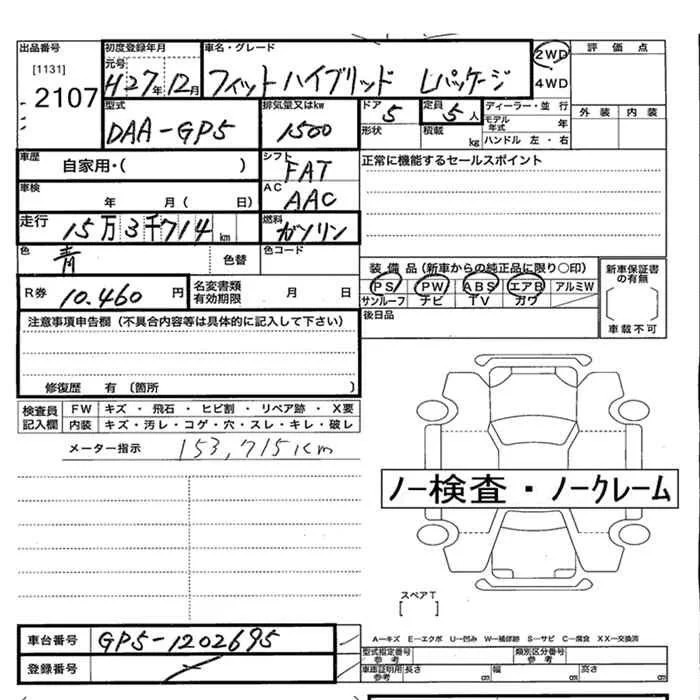 出品番号
[1131]
2107
初度登録年月
元号
H27年12月
車名・グレード
フィットハイブリッド Lパッケージ
2WD
4WD
評価点
外装 内装
型式
DAA-GP5
排気量又はkw
1500
ドア 5
形状
定員 5人
積載 kg
ディーラー・並行
モデル年式 年
ハンドル 左・右
車歴 自家用・( )
シフト FAT
正常に機能するセールスポイント
車検 年 月( 日)
AC AAC
走行 15万3千714km
燃料 ガソリン
色 青 色替
色コード
装備品(新車からの純正品に限り○印)
PS PW ABS エアB アルミW
サンルーフ ナビ TV カワ
新車保証書の有無
車載不可
R券 10.460円
名変書類有効期限 月 日
後日品
注意事項申告欄(不具合内容等は具体的に記入して下さい)
修復歴 有(箇所 )
検査員記入欄
FW キズ・飛石・ヒビ割・リペア跡・X要
内装 キズ・汚レ・コゲ・穴・スレ・キレ・破レ
メーター指示 153,715km
ノー検査・ノークレーム
スペアT
[ ]
車台番号 GP5-1202695
登録番号
A-キズ E-エクボ U-凹み W-補修跡 S-サビ C-腐食 XX-交換済
型式指定番号 参考
類別区分番号 参考
車庫証明用 参考 長さ cm 幅 cm 高さ cm